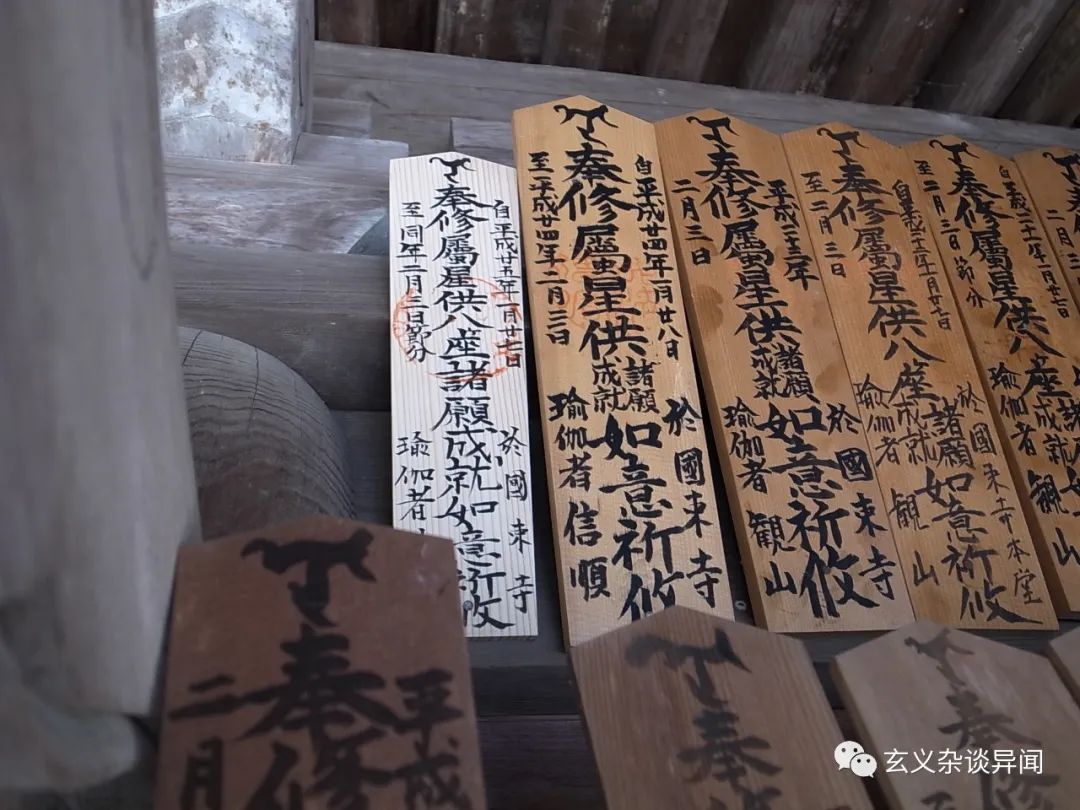 自平成廿五年一月廿七日
於國東寺
奉修屬星供八座諸願成就如意祈攸
至同年二月三日節分
瑜伽者
自平成廿四年一月廿八日
於國東寺
奉修屬星供諸願成就如意祈攸
至平成廿四年二月三日
瑜伽者信順
平成二十三年
於國東寺
奉修屬星供諸願成就如意祈攸
二月三日
瑜伽者観山
於國東寺本堂
奉修屬星供八座諸願成就如意祈攸
至二月三日
瑜伽者観山
奉修屬星供八座諸願成就
至二月三日節分
瑜伽者観
二月三
平成
奉修
二月
奉
奉
玄义杂谈异闻